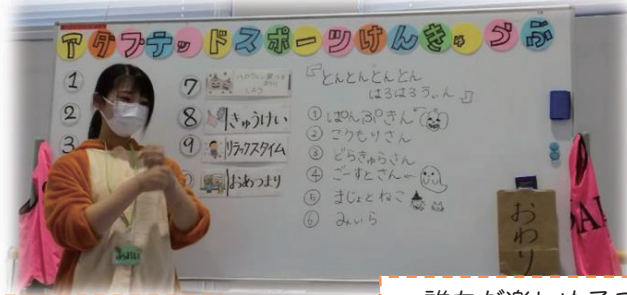 アダプテッドスポーツけんきゅうぶ
①
②
③
⑦
⑧ きゅうけい
⑨ リラックスタイム
おあつまり
『とんとんとんとん
はろはろうぃん』
① ぱんぷきん
② こうもりさん
③ どらきゅらさん
④ ごーすとさん
⑤ まじょとねこ
⑥ みいら
おわり